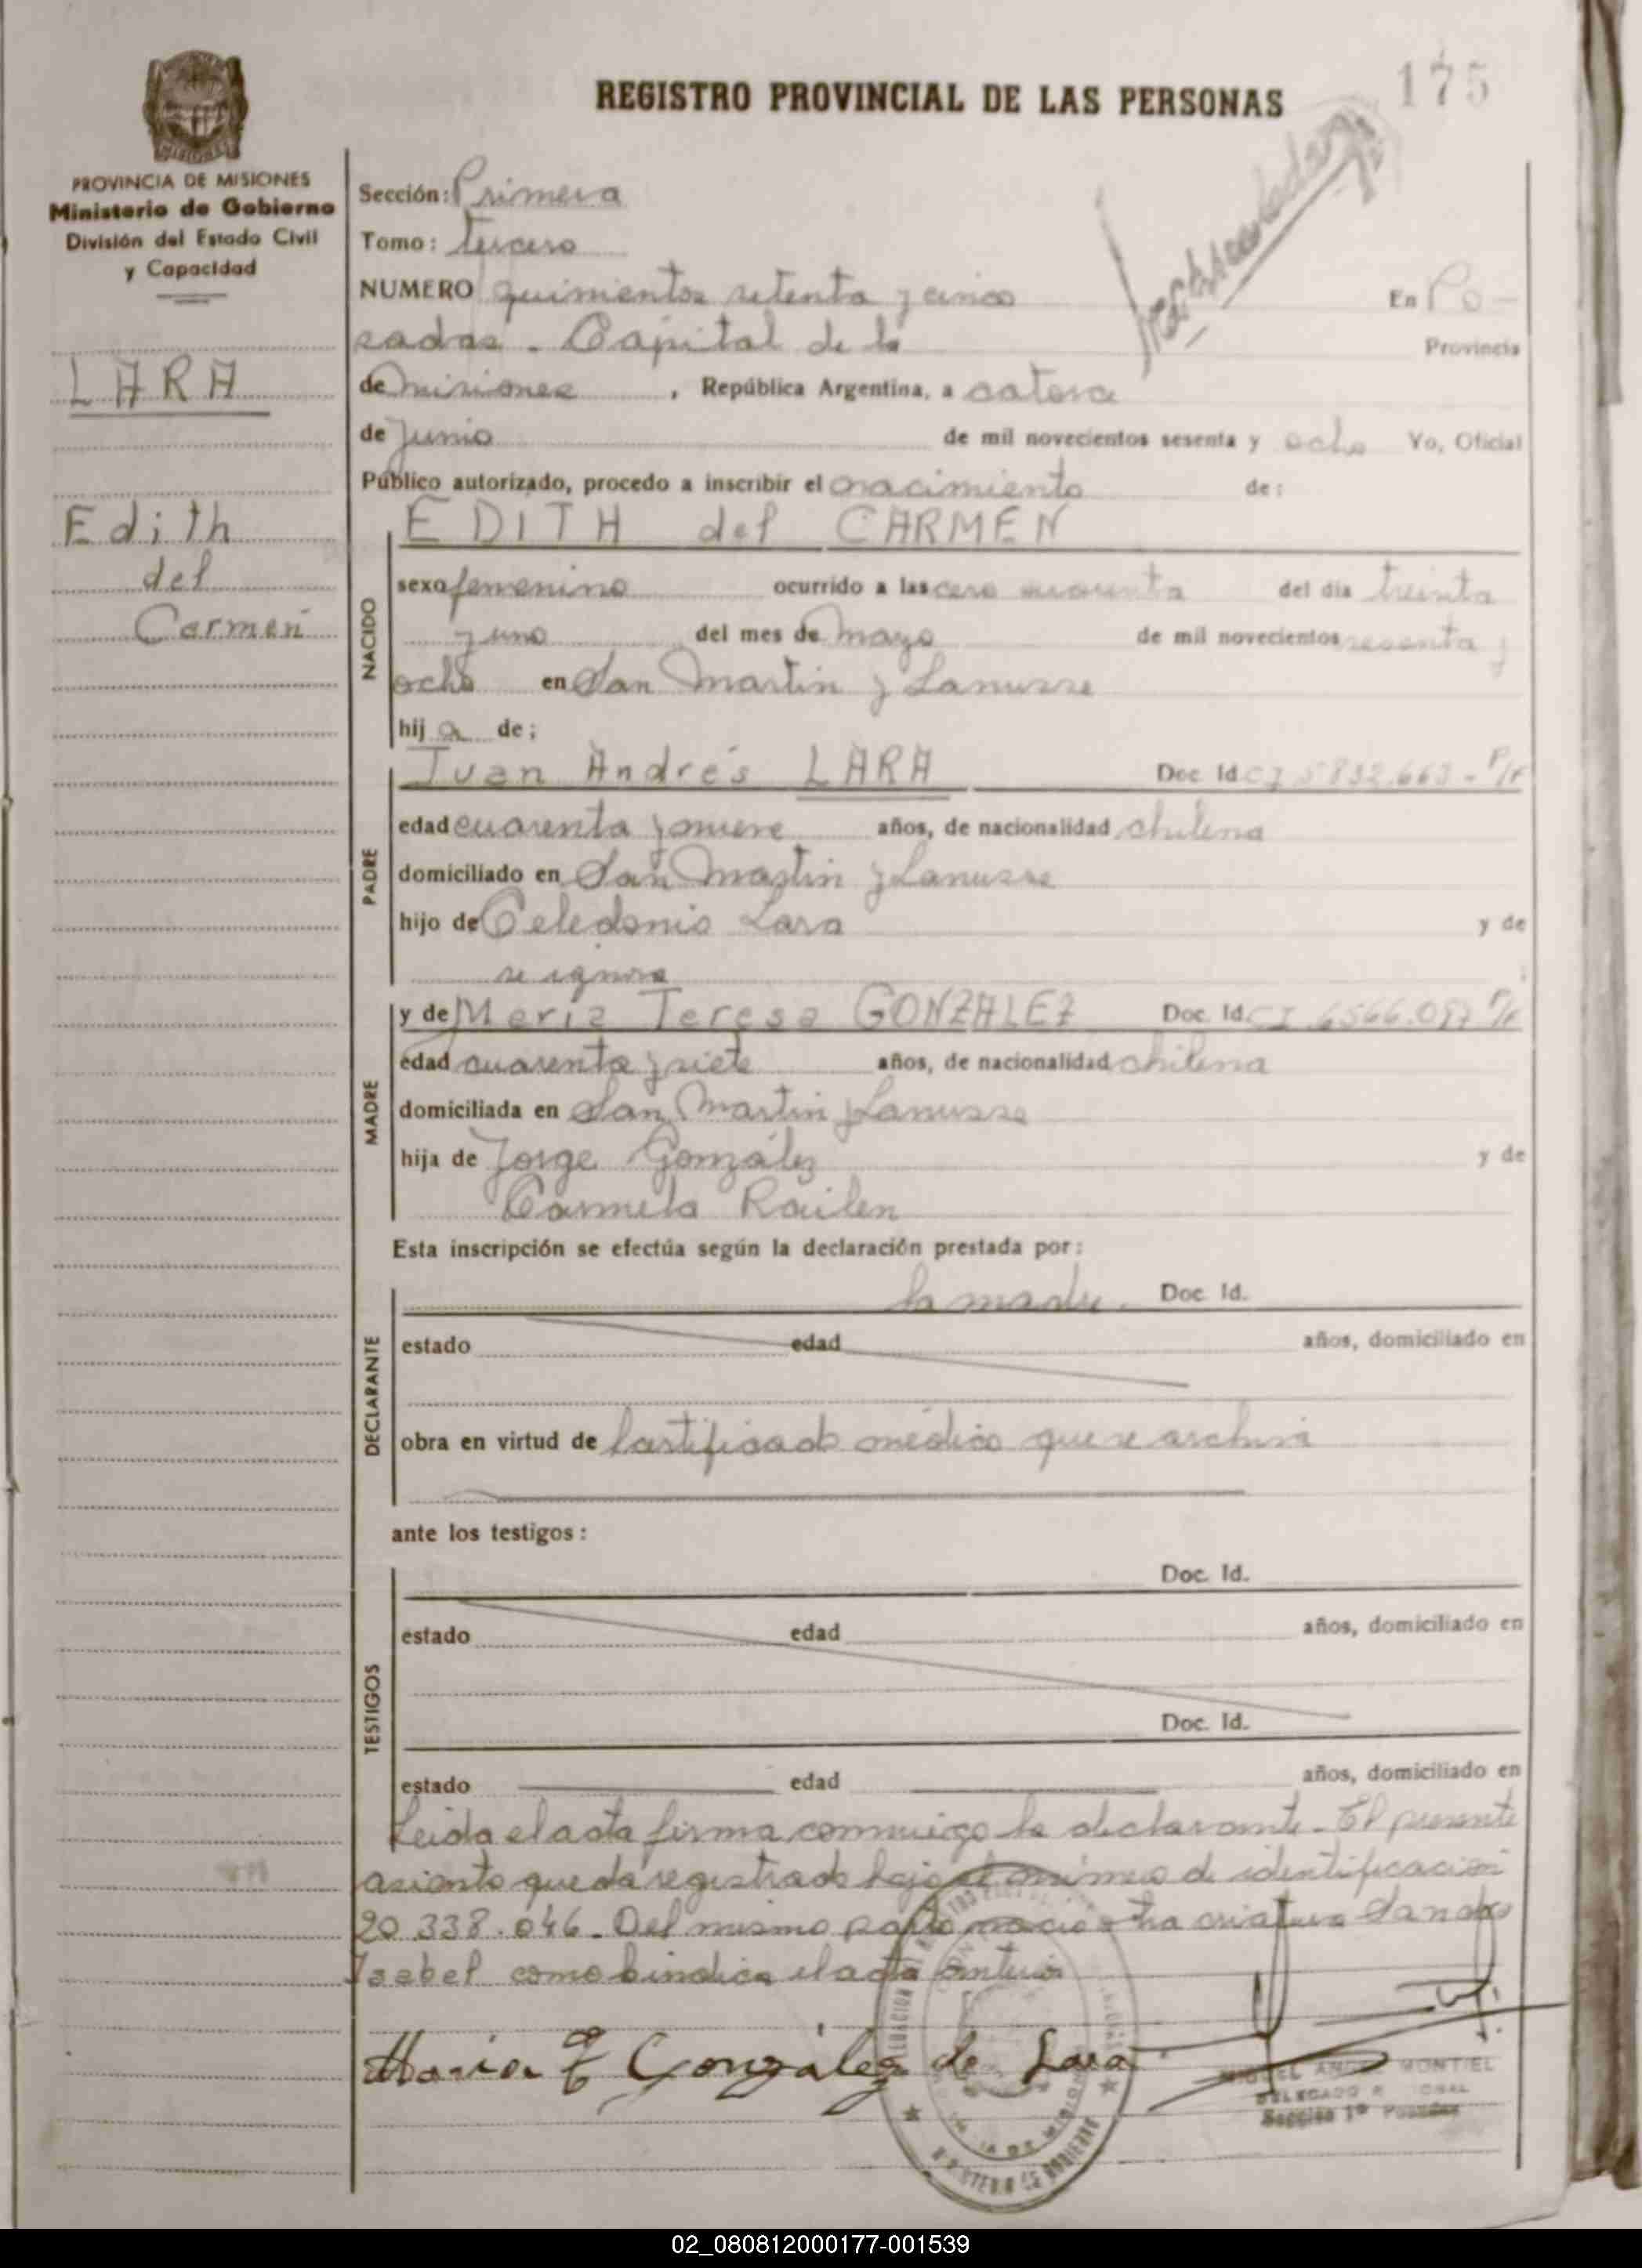 175
REGISTRO PROVINCIAL DE LAS PERSONAS
MISIONES
PROVINCIA DE MISIONES
Ministerio de Gobierno
División del Estado Civil
y Capacidad
LARA
Edith
del
Carmen
Sección: Primera
Tomo: tercero
NUMERO quinientos setenta y cinco En Po-
sadas - Capital de la Provincia
de Misiones, República Argentina, a catorce
de Junio de mil novecientos sesenta y ocho Yo, Oficial
Público autorizado, procedo a inscribir el nacimiento de:
NACIDO
EDITH del CARMEN
sexo femenino ocurrido a las cero cuarenta del día treinta
y uno del mes de mayo de mil novecientos sesenta y
ocho en San Martin y Lanusse
hij a de;
PADRE
Juan Andrés LARA Doc. Id. CI 5832.663 - P/F
edad cuarenta y nueve años, de nacionalidad chilena
domiciliado en San Martin y Lanusse
hijo de Celedonio Lara y de
se ignora
MADRE
y de María Teresa GONZALEZ Doc. Id. CI 6566.097 P/F
edad cuarenta y siete años, de nacionalidad chilena
domiciliada en San Martin y Lanusse
hija de Jorge González y de
Carmela Railen
Esta inscripción se efectúa según la declaración prestada por:
DECLARANTE
la madre. Doc. Id.
estado edad años, domiciliado en
obra en virtud de Certificado médico que se archiva
ante los testigos:
TESTIGOS
Doc. Id.
estado edad años, domiciliado en
Doc. Id.
estado edad años, domiciliado en
Leida el acta firma conmigo la declarante. El presente
asiento queda registrado bajo el número de identificación
20.338.046. Del mismo parto nació otra criatura Sandra
Isabel como lo indica el acta anterior
Maria T González de Lara
MIGUEL ANGEL MONTIEL
DELEGADO
Sección 1º Posadas
02_080812000177-001539